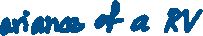 ariance of a RV